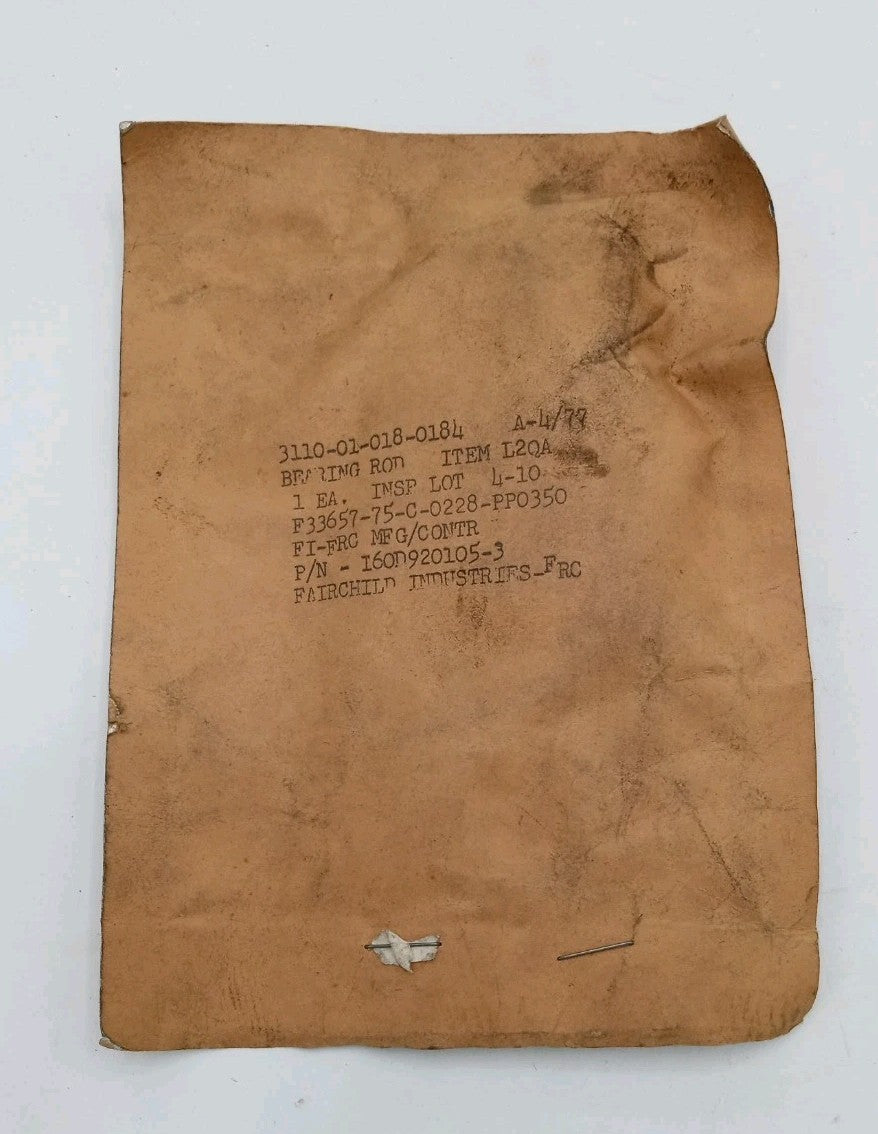 3110-01-018-0184 A-4/77
BEARING ROD ITEM L2QA
1 EA. INSP LOT 4-10
F33657-75-C-0228-PP0350
FI-FRC MFG/CONTR
P/N - 160D920105-3
FAIRCHILD INDUSTRIES-FRC